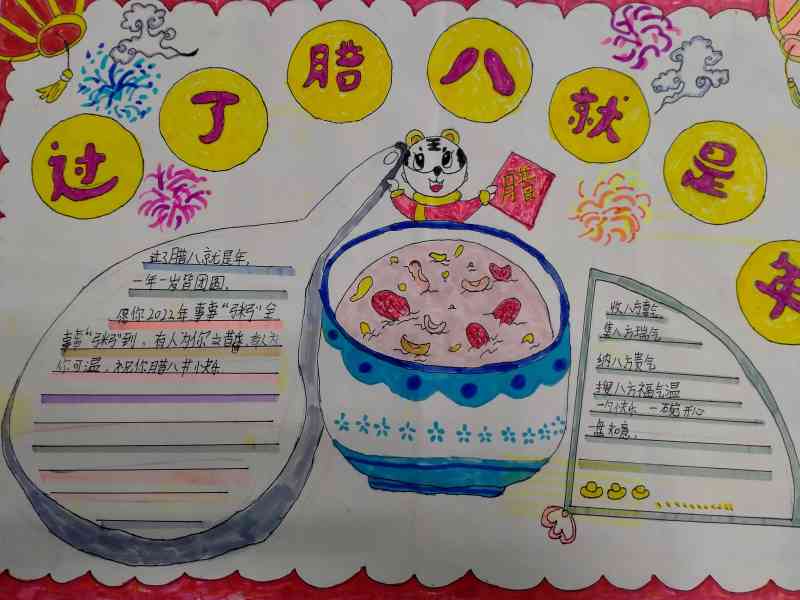 过了腊八就是年
腊
过了腊八就是年,
一年一岁皆团圆。
愿你2022年事事“粥”全
事事“粥”到,有人为你立黄昏,有人为
你可温,祝你腊八节快乐
收八方喜气
集八方瑞气
纳八方贵气
搜八方福气温
一勺快乐 一碗开心
盘如意。